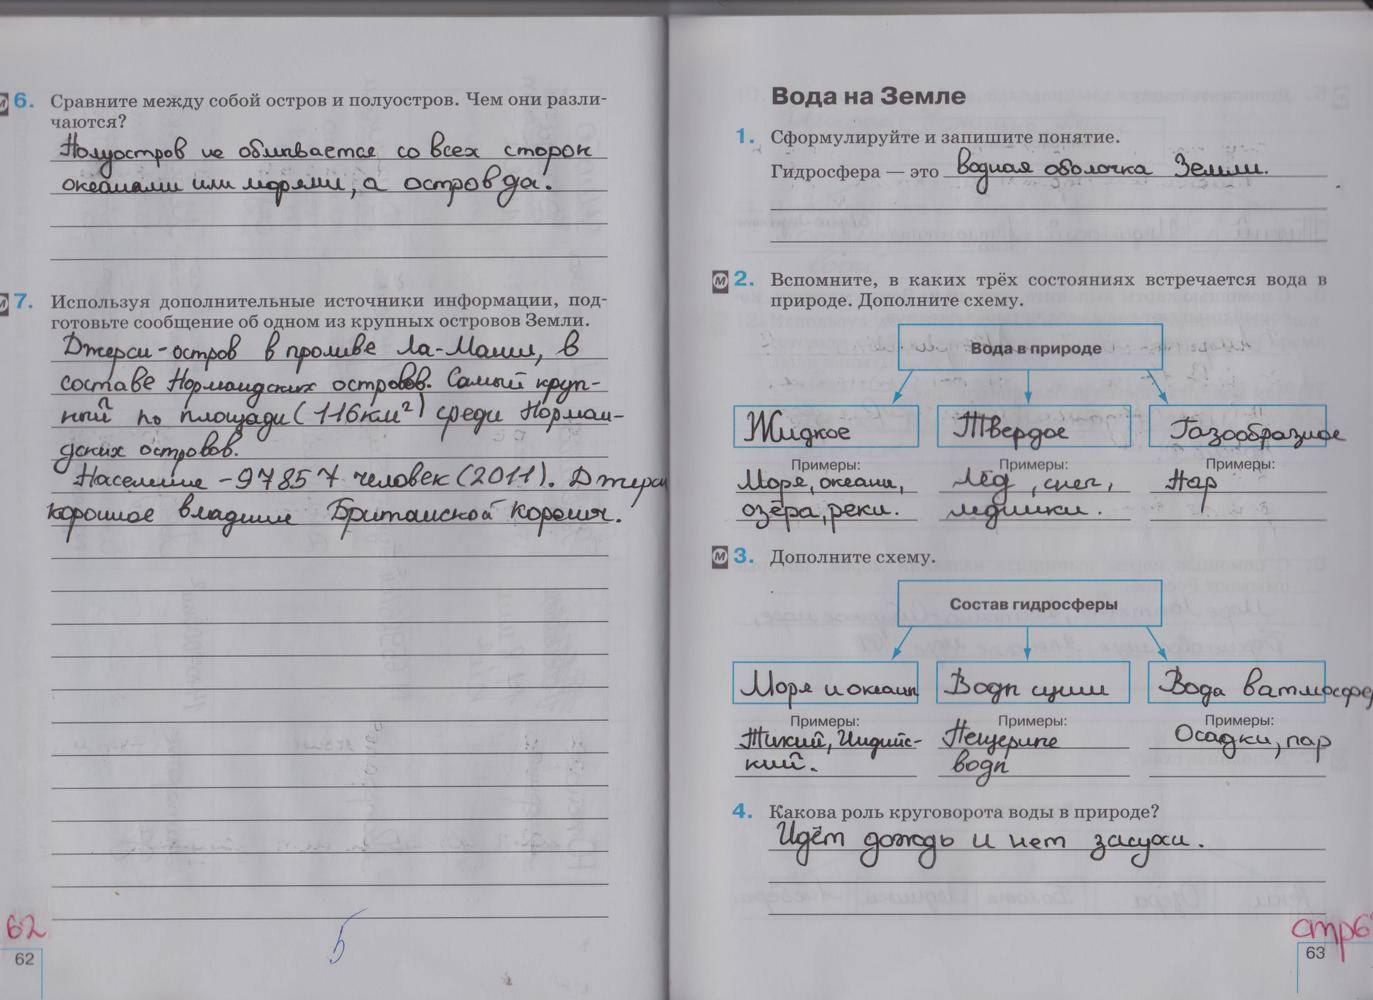 6. Сравните между собой остров и полуостров. Чем они разли-
чаются?
Полуостров не обмывается со всех сторон
океанами или морями, а остров да.
7. Используя дополнительные источники информации, под-
готовьте сообщение об одном из крупных островов Земли.
Джерси-остров в проливе Ла-Манш, в
составе Нормандских островов. Самый круп-
ный по площади (116км²) среди Норман-
дских островов.
Население - 97857 человек (2011). Джерси
коронное владение Британской короны.
62
5
62
Вода на Земле
1. Сформулируйте и запишите понятие.
Гидросфера — это водная оболочка Земли.
М 2. Вспомните, в каких трёх состояниях встречается вода в
природе. Дополните схему.
Вода в природе
Жидкое Твердое Газообразное
Примеры: Примеры: Примеры:
Моря, океаны, Лёд, снег, Пар
озёра, реки. ледники.
М 3. Дополните схему.
Состав гидросферы
Моря и океаны Воды суши Вода в атмосфере
Примеры: Примеры: Примеры:
Тихий, Индийс- Пещерные Осадки, пар
кий. воды
4. Какова роль круговорота воды в природе?
Идёт дождь и нет засухи.
стр6
63